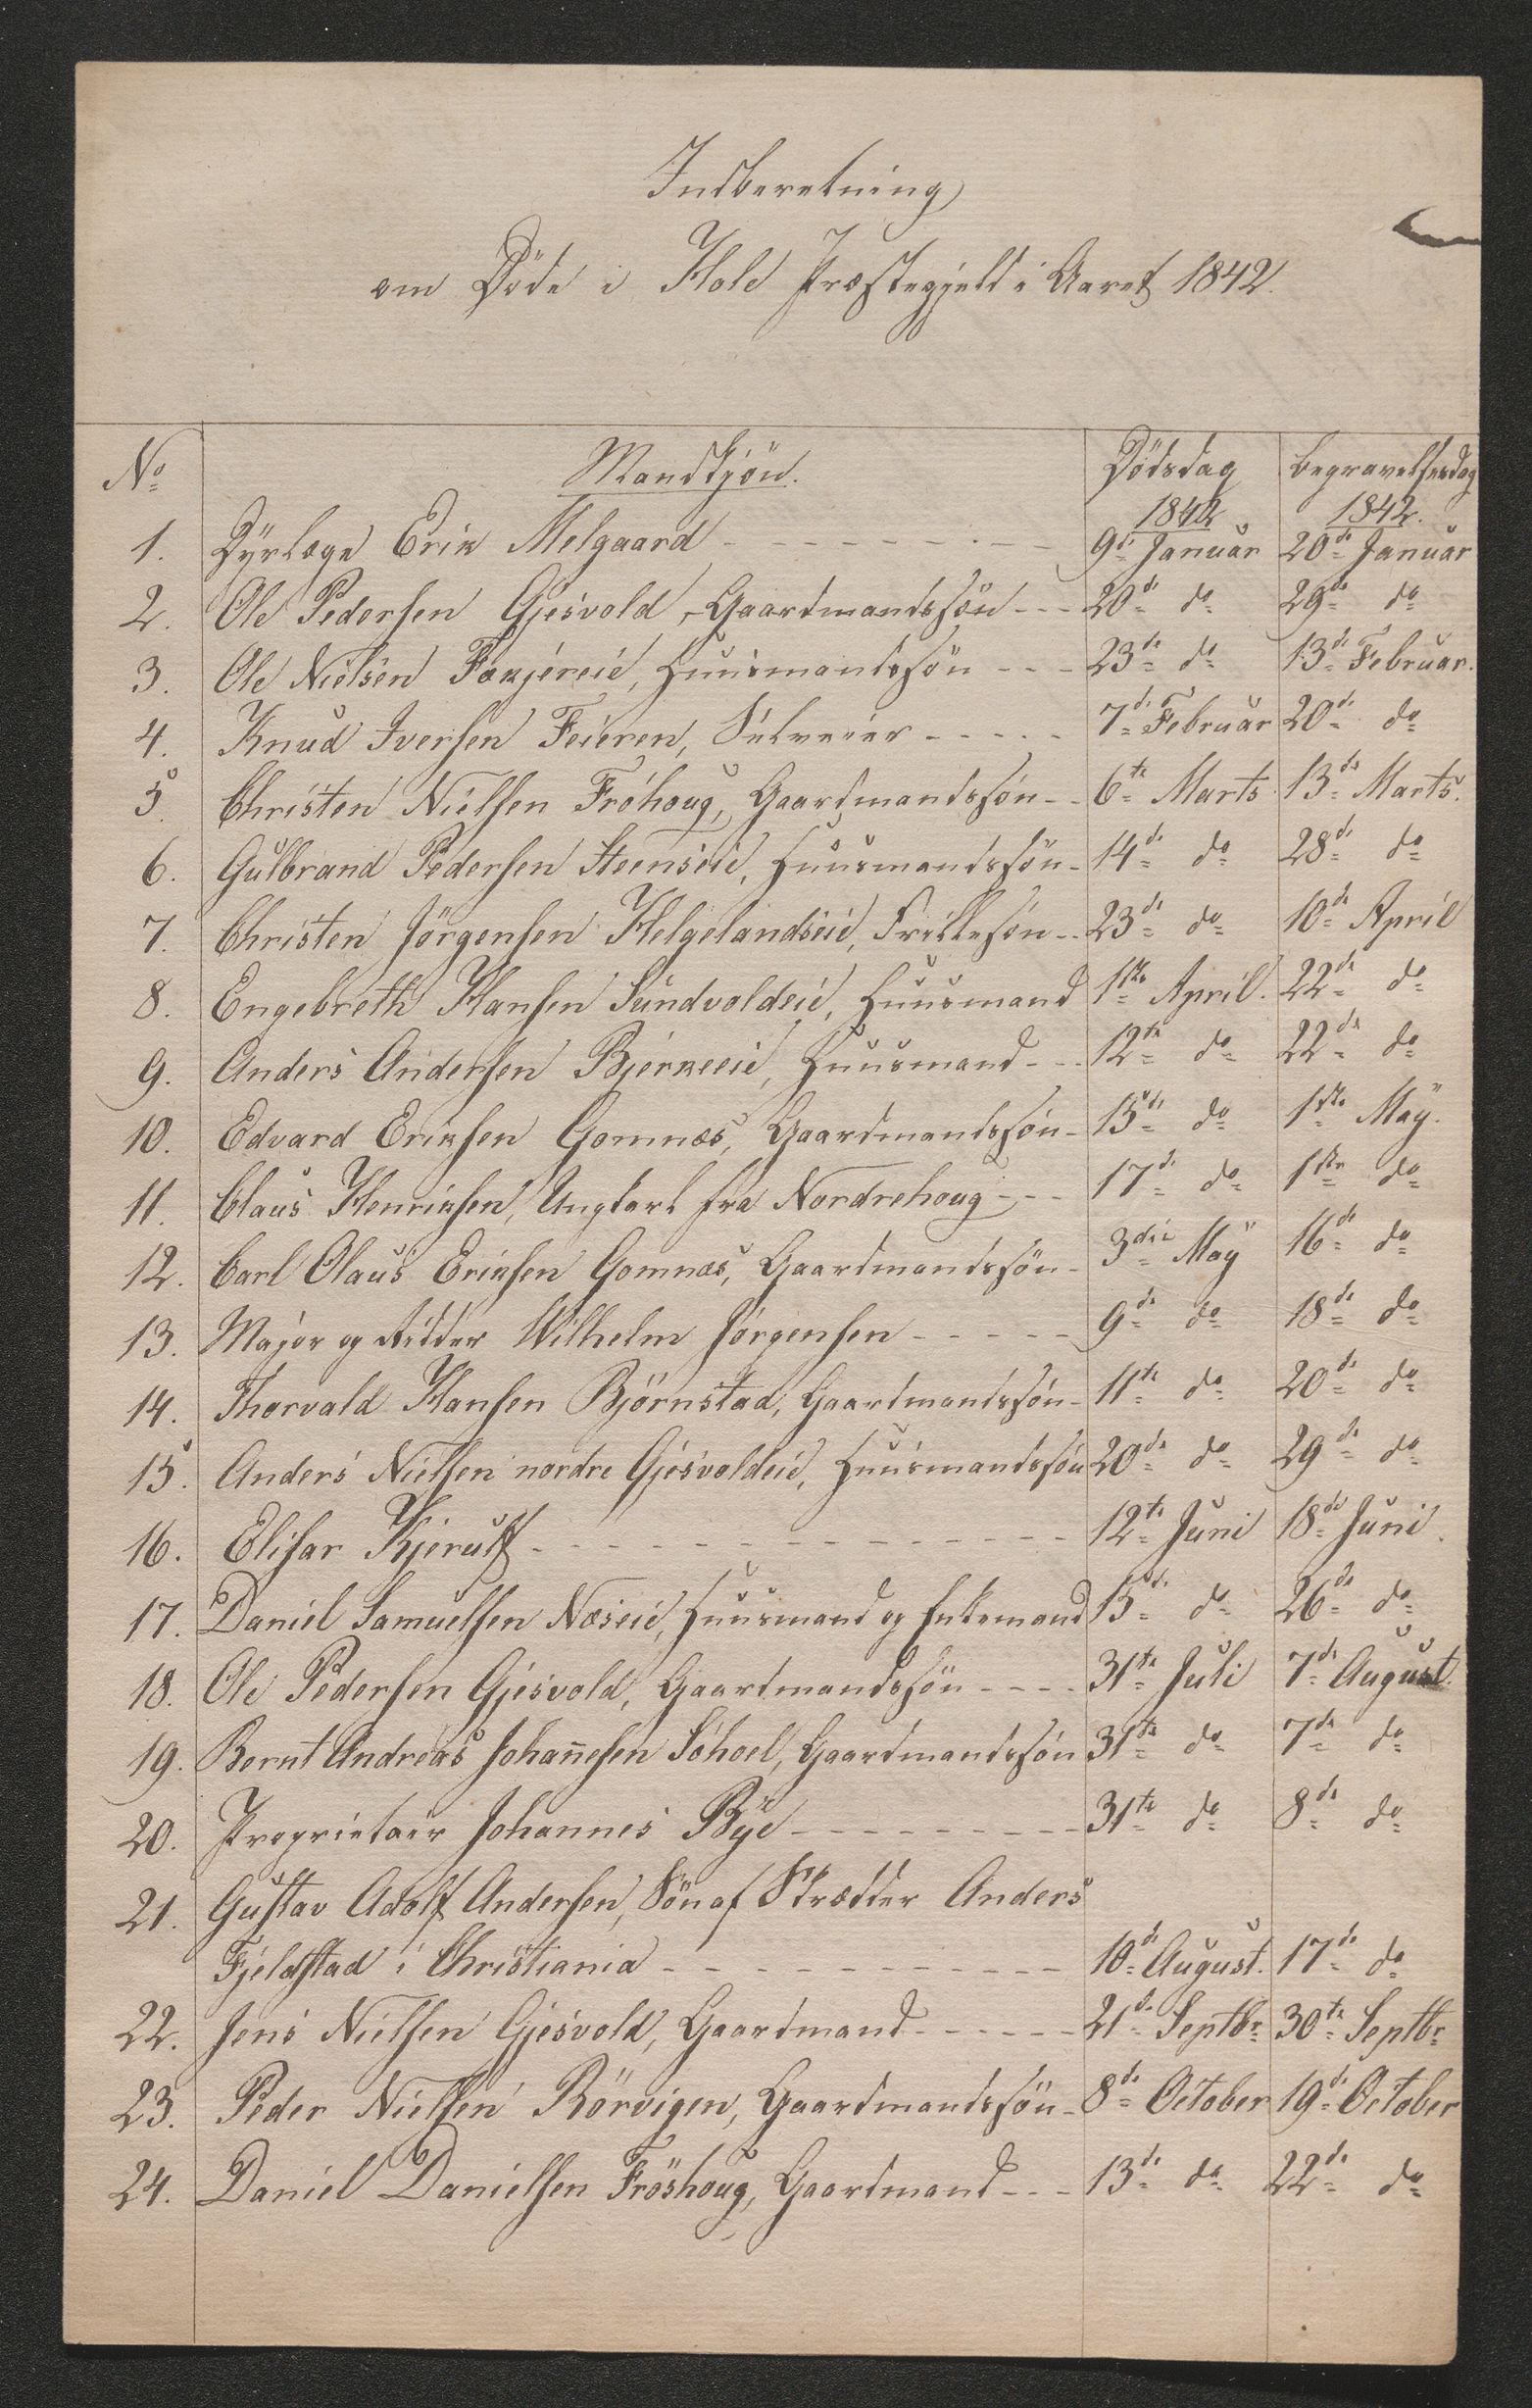 Indberetning
om Döde i Hole Præstegjeld i Aaret 1842.
No Mandkjön. Dödsdag Begravelsesdag
1842 1842.
1. Dÿrlæge Erik Melgaard - - - 9de Januar 20de Januar
2. Ole Pedersen Gjesvold, Gaardmandssön - - - 20de do 29de do
3. Ole Nielsen Fækjereie, Huusmandssön - - - 23de do 13de Februar.
4. Knud Iversen Feieren, Selveier - - - 7de Februar 20de do
5. Christen Nielsen Fröhoug, Gaardmandssön - - 6te Marts 13de Marts.
6. Gulbrand Pedersen Steenseie, Huusmandssön - 14de do 28de do
7. Christen Jörgensen Helgelandseie, Frillesön - - 23de do 10de April
8. Engebreth Hansen Sundvoldeie, Huusmand 1ste April. 22de do
9. Anders Andersen Bjerkeeie, Huusmand - - - 12te do 22de do
10. Edvard Eriksen Gomnæs, Gaardmandssön - 15de do 1ste Maÿ.
11. Claus Henriksen, Ungkarl fra Nordrehoug - - - 17de do 1ste do
12. Carl Olaus Eriksen Gomnæs, Gaardmandssön - 3die Maÿ 16de do
13. Major og Ridder Wilhelm Jörgensen - - - 9de do 18de do
14. Thorvald Hansen Björnstad, Gaardmandssön - 11te do 20de do
15. Anders Nielsen nordre Gjesvoldeie, Huusmandssön 20de do 29de do
16. Elisar Kjerulf - - - 12te Juni 18de Juni.
17. Daniel Samuelsen Næseie, Huusmand og Enkemand 15de do 26de do
18. Ole Pedersen Gjesvold, Gaardmandssön - - - 31te Juli 7de August.
19. Bernt Andreas Johannesen Söhoel, Gaardmandssön 31te do 7de do
20. Proprietair Johannes Bÿe - - - 31te do 8de do
21. Gustav Adolf Andersen, Sön af Skrædder Anders
Fjeldstad i Christiania - - - 10de August. 17de do
22. Jens Nielsen Gjesvold, Gaardmand - - - 21de Septbr 30te Septbr
23. Peder Nielsen Rörvigen, Gaardmandssön - 8de October 19de October
24. Daniel Danielsen Fröshoug, Gaardmand - - - 13de do 22de do